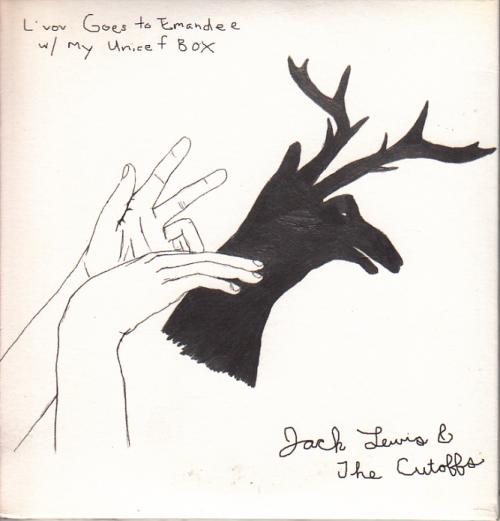 L'vov Goes to Emandee
w/ My Unicef BOX
Jack Lewis &
The Cutoffs